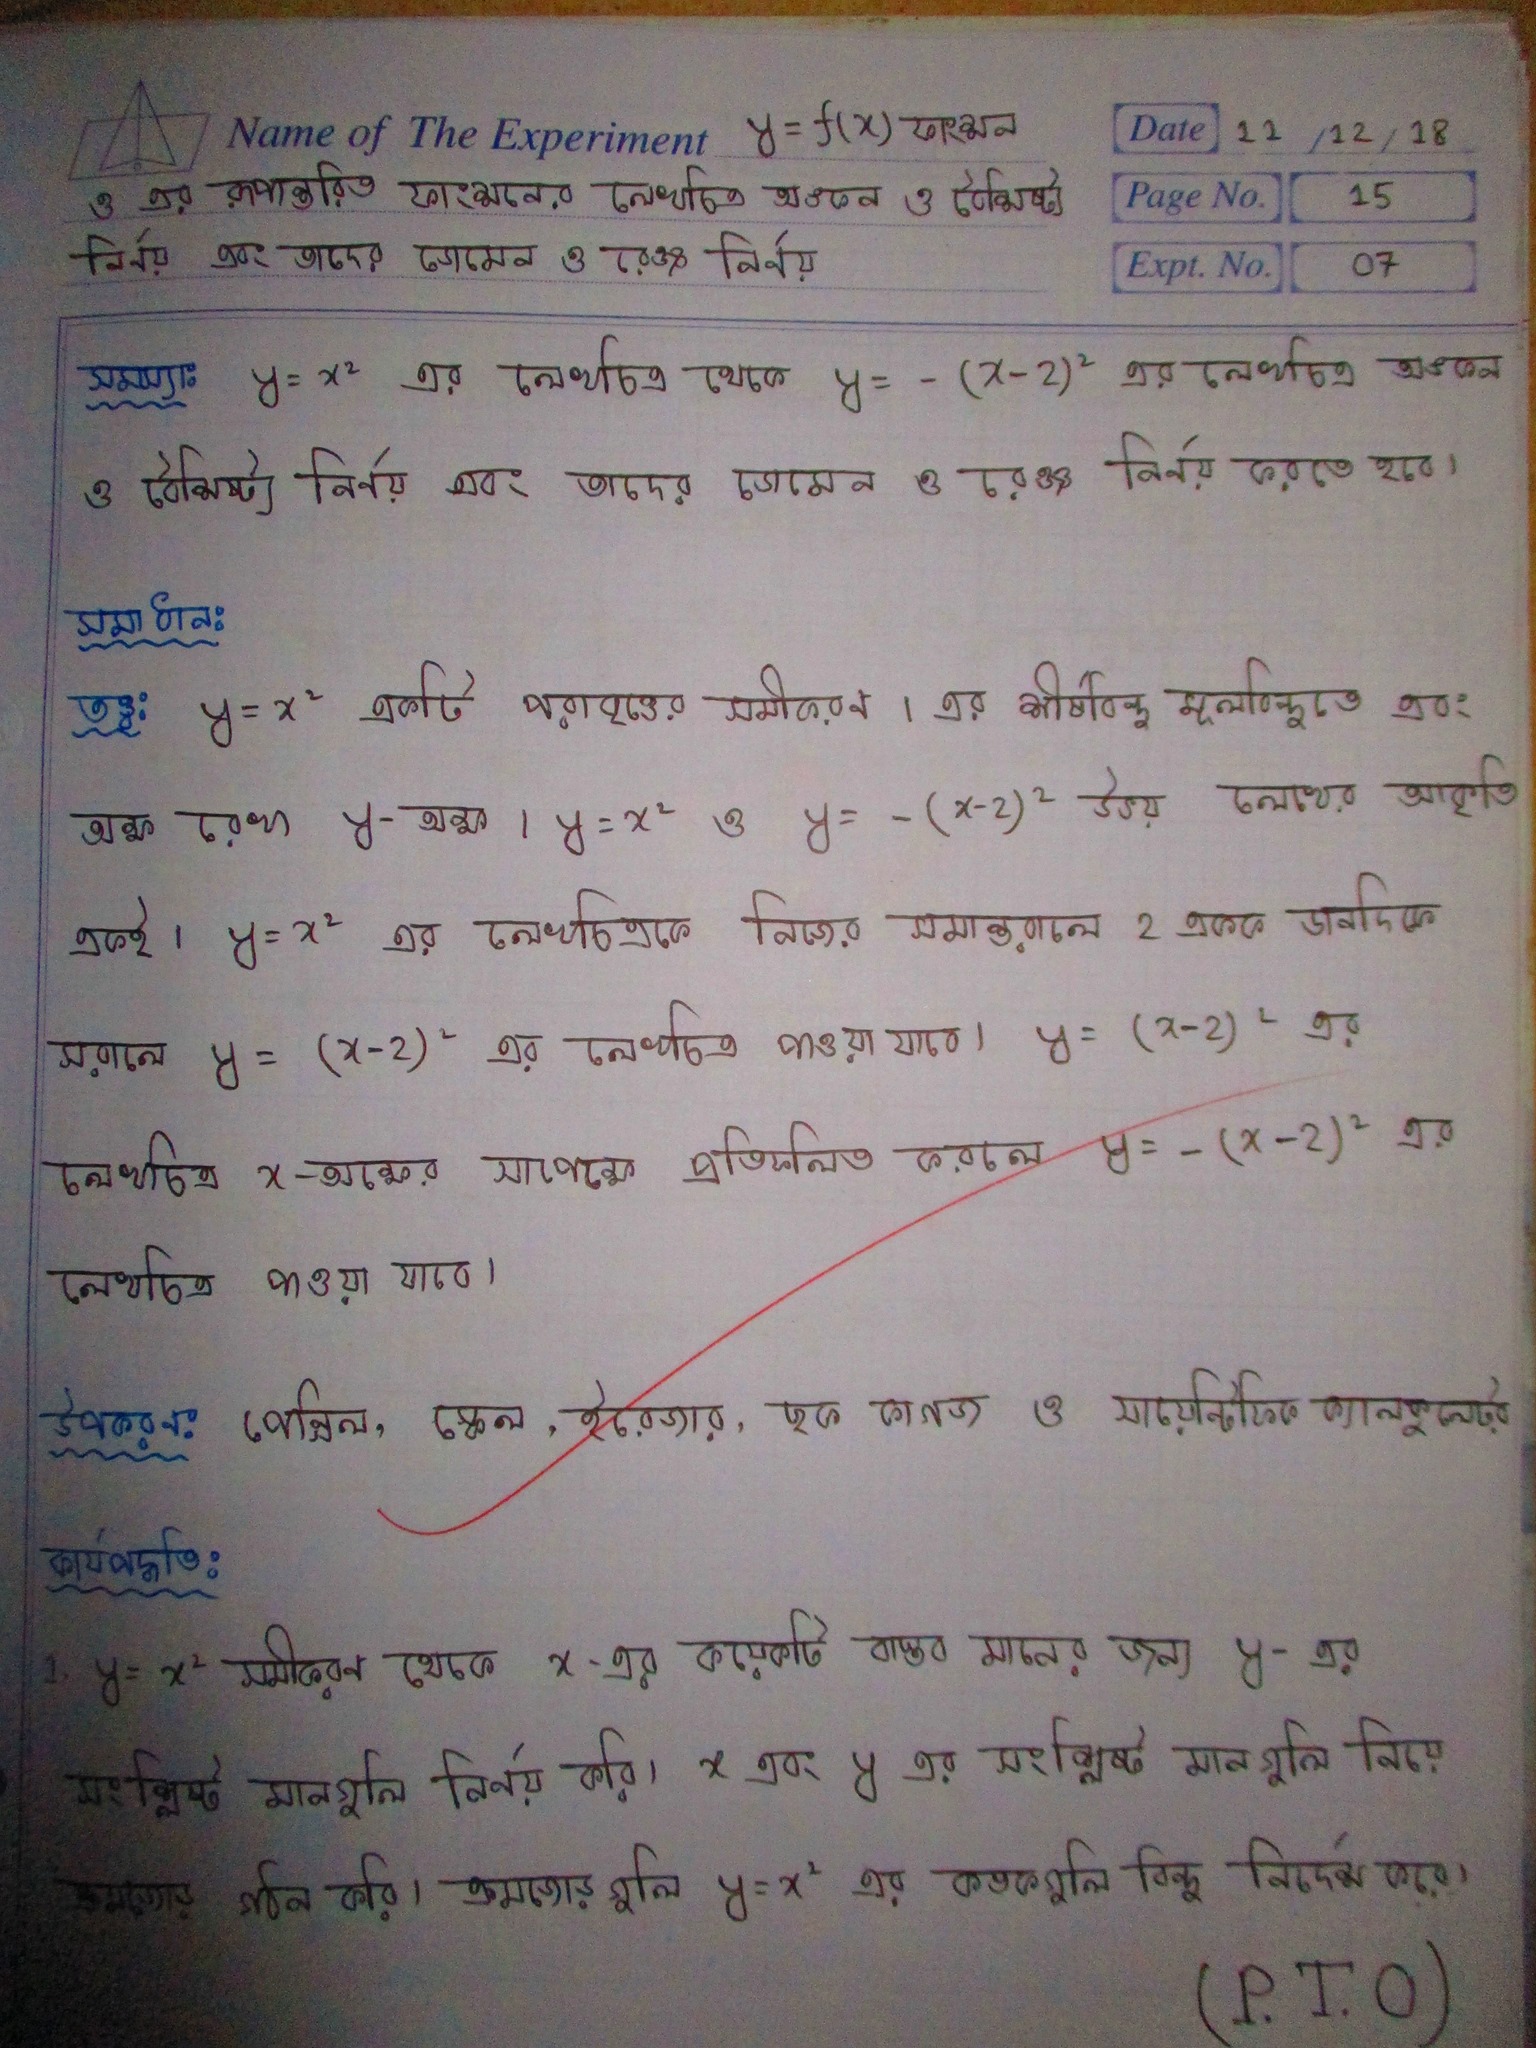 Name of The Experiment y = f(x) ফাংশন
Date 11 /12/ 18
ও এর রূপান্তরিত ফাংশনের লেখচিত্র অঙ্কন ও বৈশিষ্ট্য
Page No. 15
নির্ণয় এবং তাদের ডোমেন ও রেঞ্জ নির্ণয়
Expt. No. 07
সমস্যাঃ y = x² এর লেখচিত্র থেকে y = - (x-2)² এর লেখচিত্র অঙ্কন
ও বৈশিষ্ট্য নির্ণয় এবং তাদের ডোমেন ও রেঞ্জ নির্ণয় করতে হবে।
সমাধানঃ
তত্ত্বঃ y = x² একটি পরাবৃত্তের সমীকরণ। এর শীর্ষবিন্দু মূলবিন্দুতে এবং
অক্ষ রেখা y-অক্ষ। y = x² ও y = - (x-2)² উভয় লেখের আকৃতি
একই। y = x² এর লেখচিত্রকে নিজের সমান্তরালে 2 একক ডানদিকে
সরালে y = (x-2)² এর লেখচিত্র পাওয়া যাবে। y = (x-2)² এর
লেখচিত্র x-অক্ষের সাপেক্ষে প্রতিফলিত করলে y = - (x-2)² এর
লেখচিত্র পাওয়া যাবে।
উপকরণঃ পেন্সিল, স্কেল, ইরেজার, ছক কাগজ ও সায়েন্টিফিক ক্যালকুলেটর
কার্যপদ্ধতিঃ
1. y = x² সমীকরণ থেকে x-এর কয়েকটি বাস্তব মানের জন্য y- এর
সংশ্লিষ্ট মানগুলি নির্ণয় করি। x এবং y এর সংশ্লিষ্ট মানগুলি নিয়ে
ক্রমজোড় গঠন করি। ক্রমজোড়গুলি y = x² এর কতকগুলি বিন্দু নির্দেশ করে।
(P.T.O)